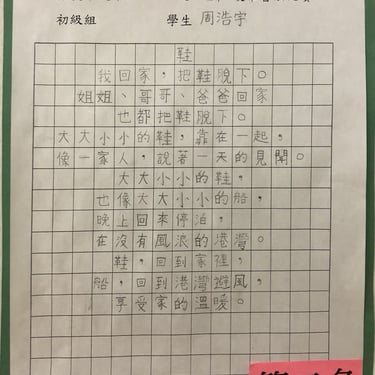 初級組 學生 周浩宇
鞋
我回家，把鞋脫下。
姐姐、哥哥、爸爸回家
也都把鞋脫下。
大大小小的鞋，靠在一起，
像一家人，說著一天的見聞。
大大小小的鞋，
也像大大小小的船，
晚上回來停泊，
在沒有風浪的港灣。
鞋，回到家裡，
船，回到港灣避風，
享受家的溫暖。